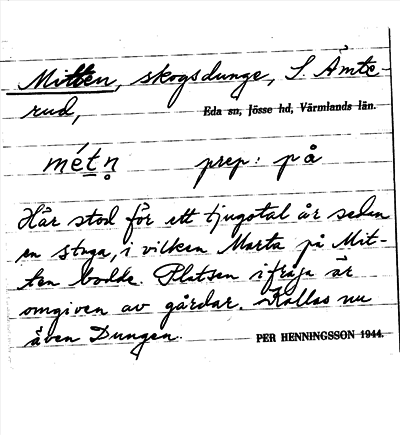 Mitten, skogsdunge, S. Åmte-
rud,
Eda sn, Jösse hd, Värmlands län.
métn̥ prep: på
Här stod för ett tjugotal år sedan
en stuga, i vilken Marta på Mit-
ten bodde. Platsen ifråga är
omgiven av gårdar. Kallas nu
även Dungen.
PER HENNINGSSON 1944.